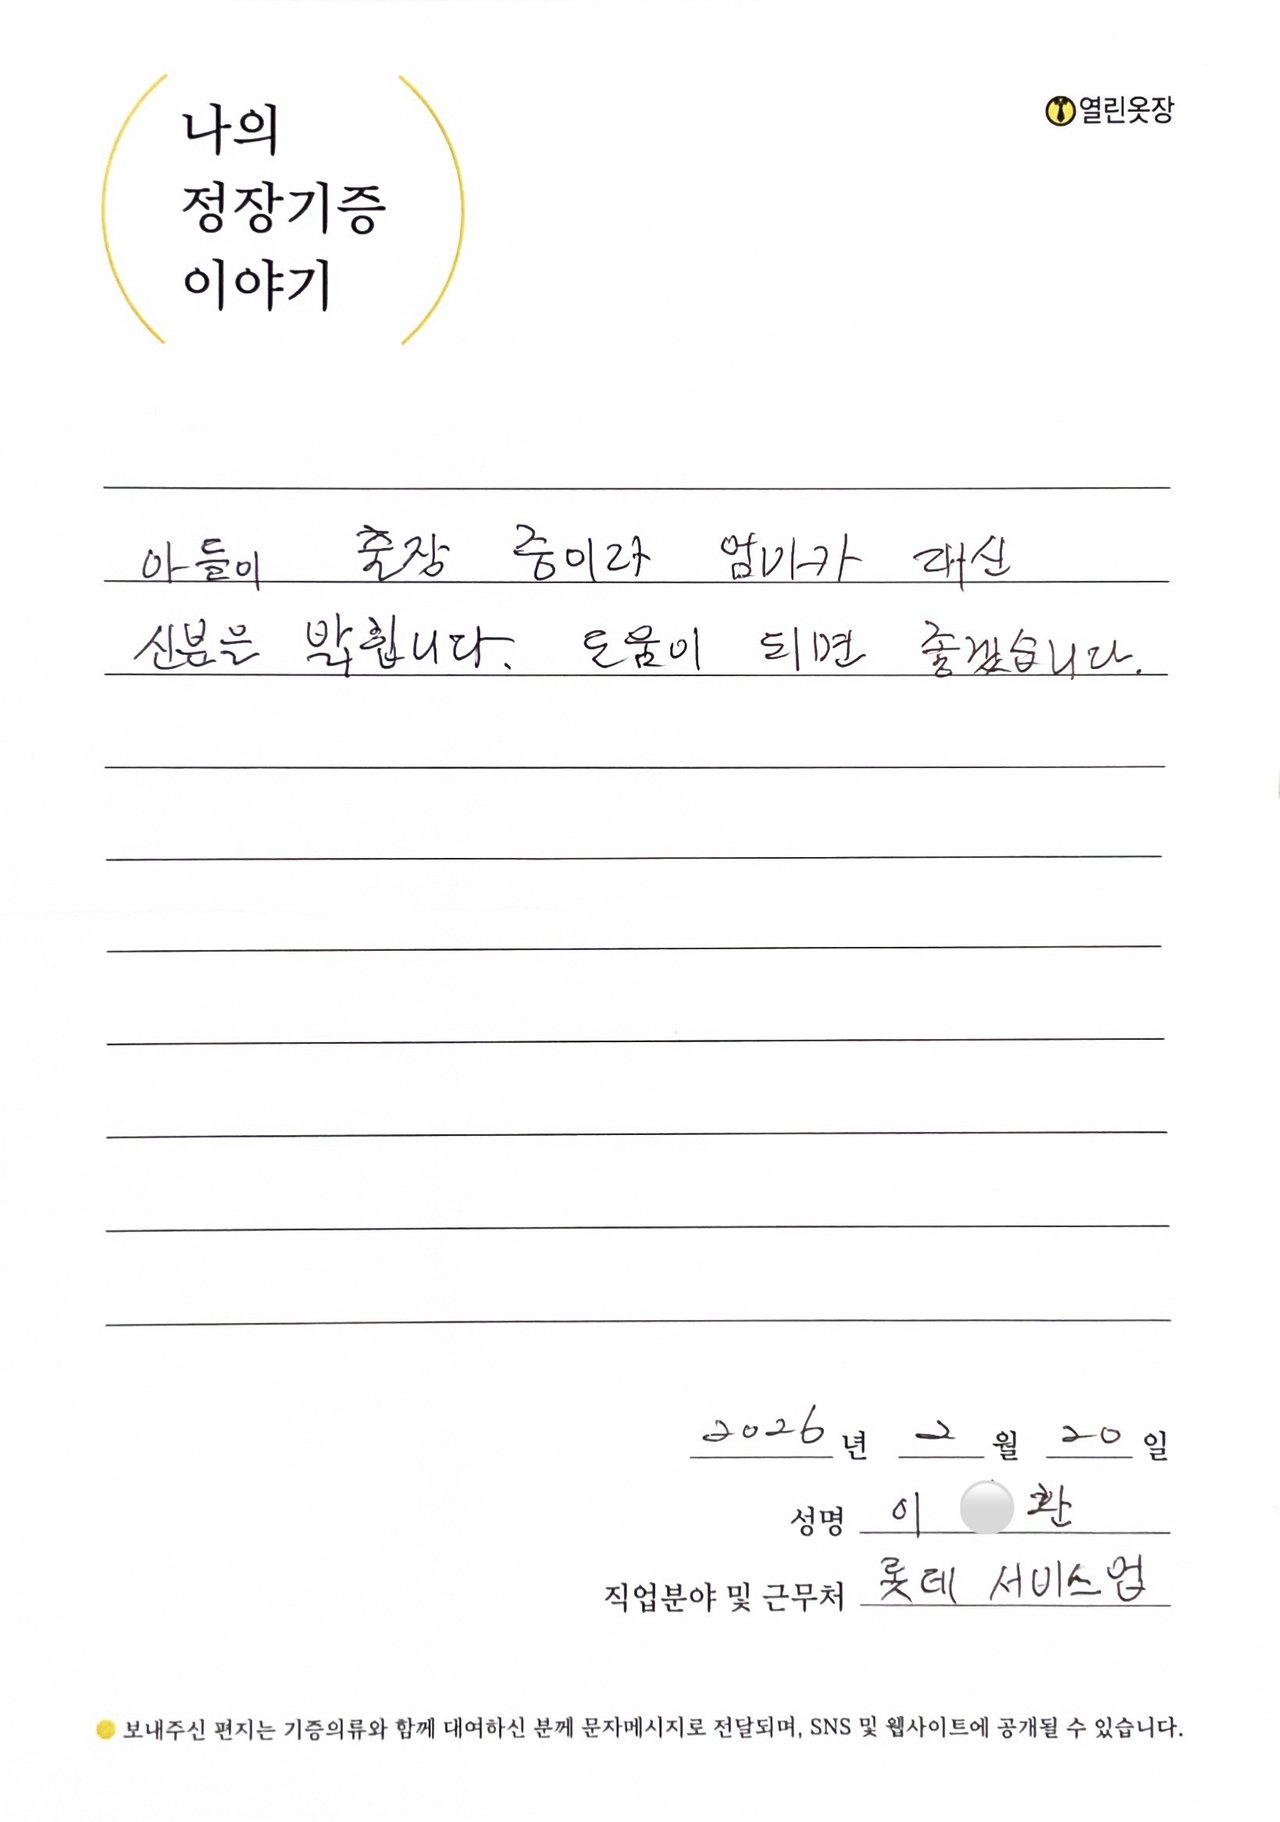 나의
정장기증
이야기
열린옷장
아들이 출장 중이라 엄마가 대신
신분을 밝힙니다. 도움이 되면 좋겠습니다.
2026년 2월 20일
성명 이 환
직업분야 및 근무처 롯데 서비스업
보내주신 편지는 기증의류와 함께 대여하신 분께 문자메시지로 전달되며, SNS 및 웹사이트에 공개될 수 있습니다.